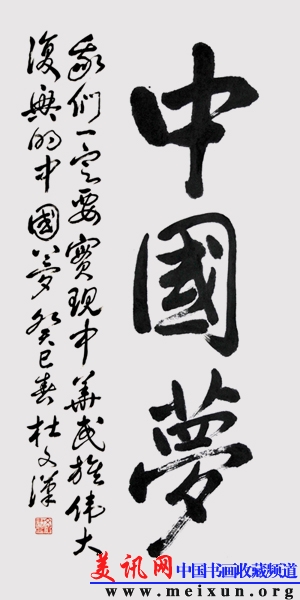 中國夢
我們一定要實現中華民族偉大
復興的中國夢癸巳春杜文漢
美讯网
中国书画收藏频道
www.meixun.org